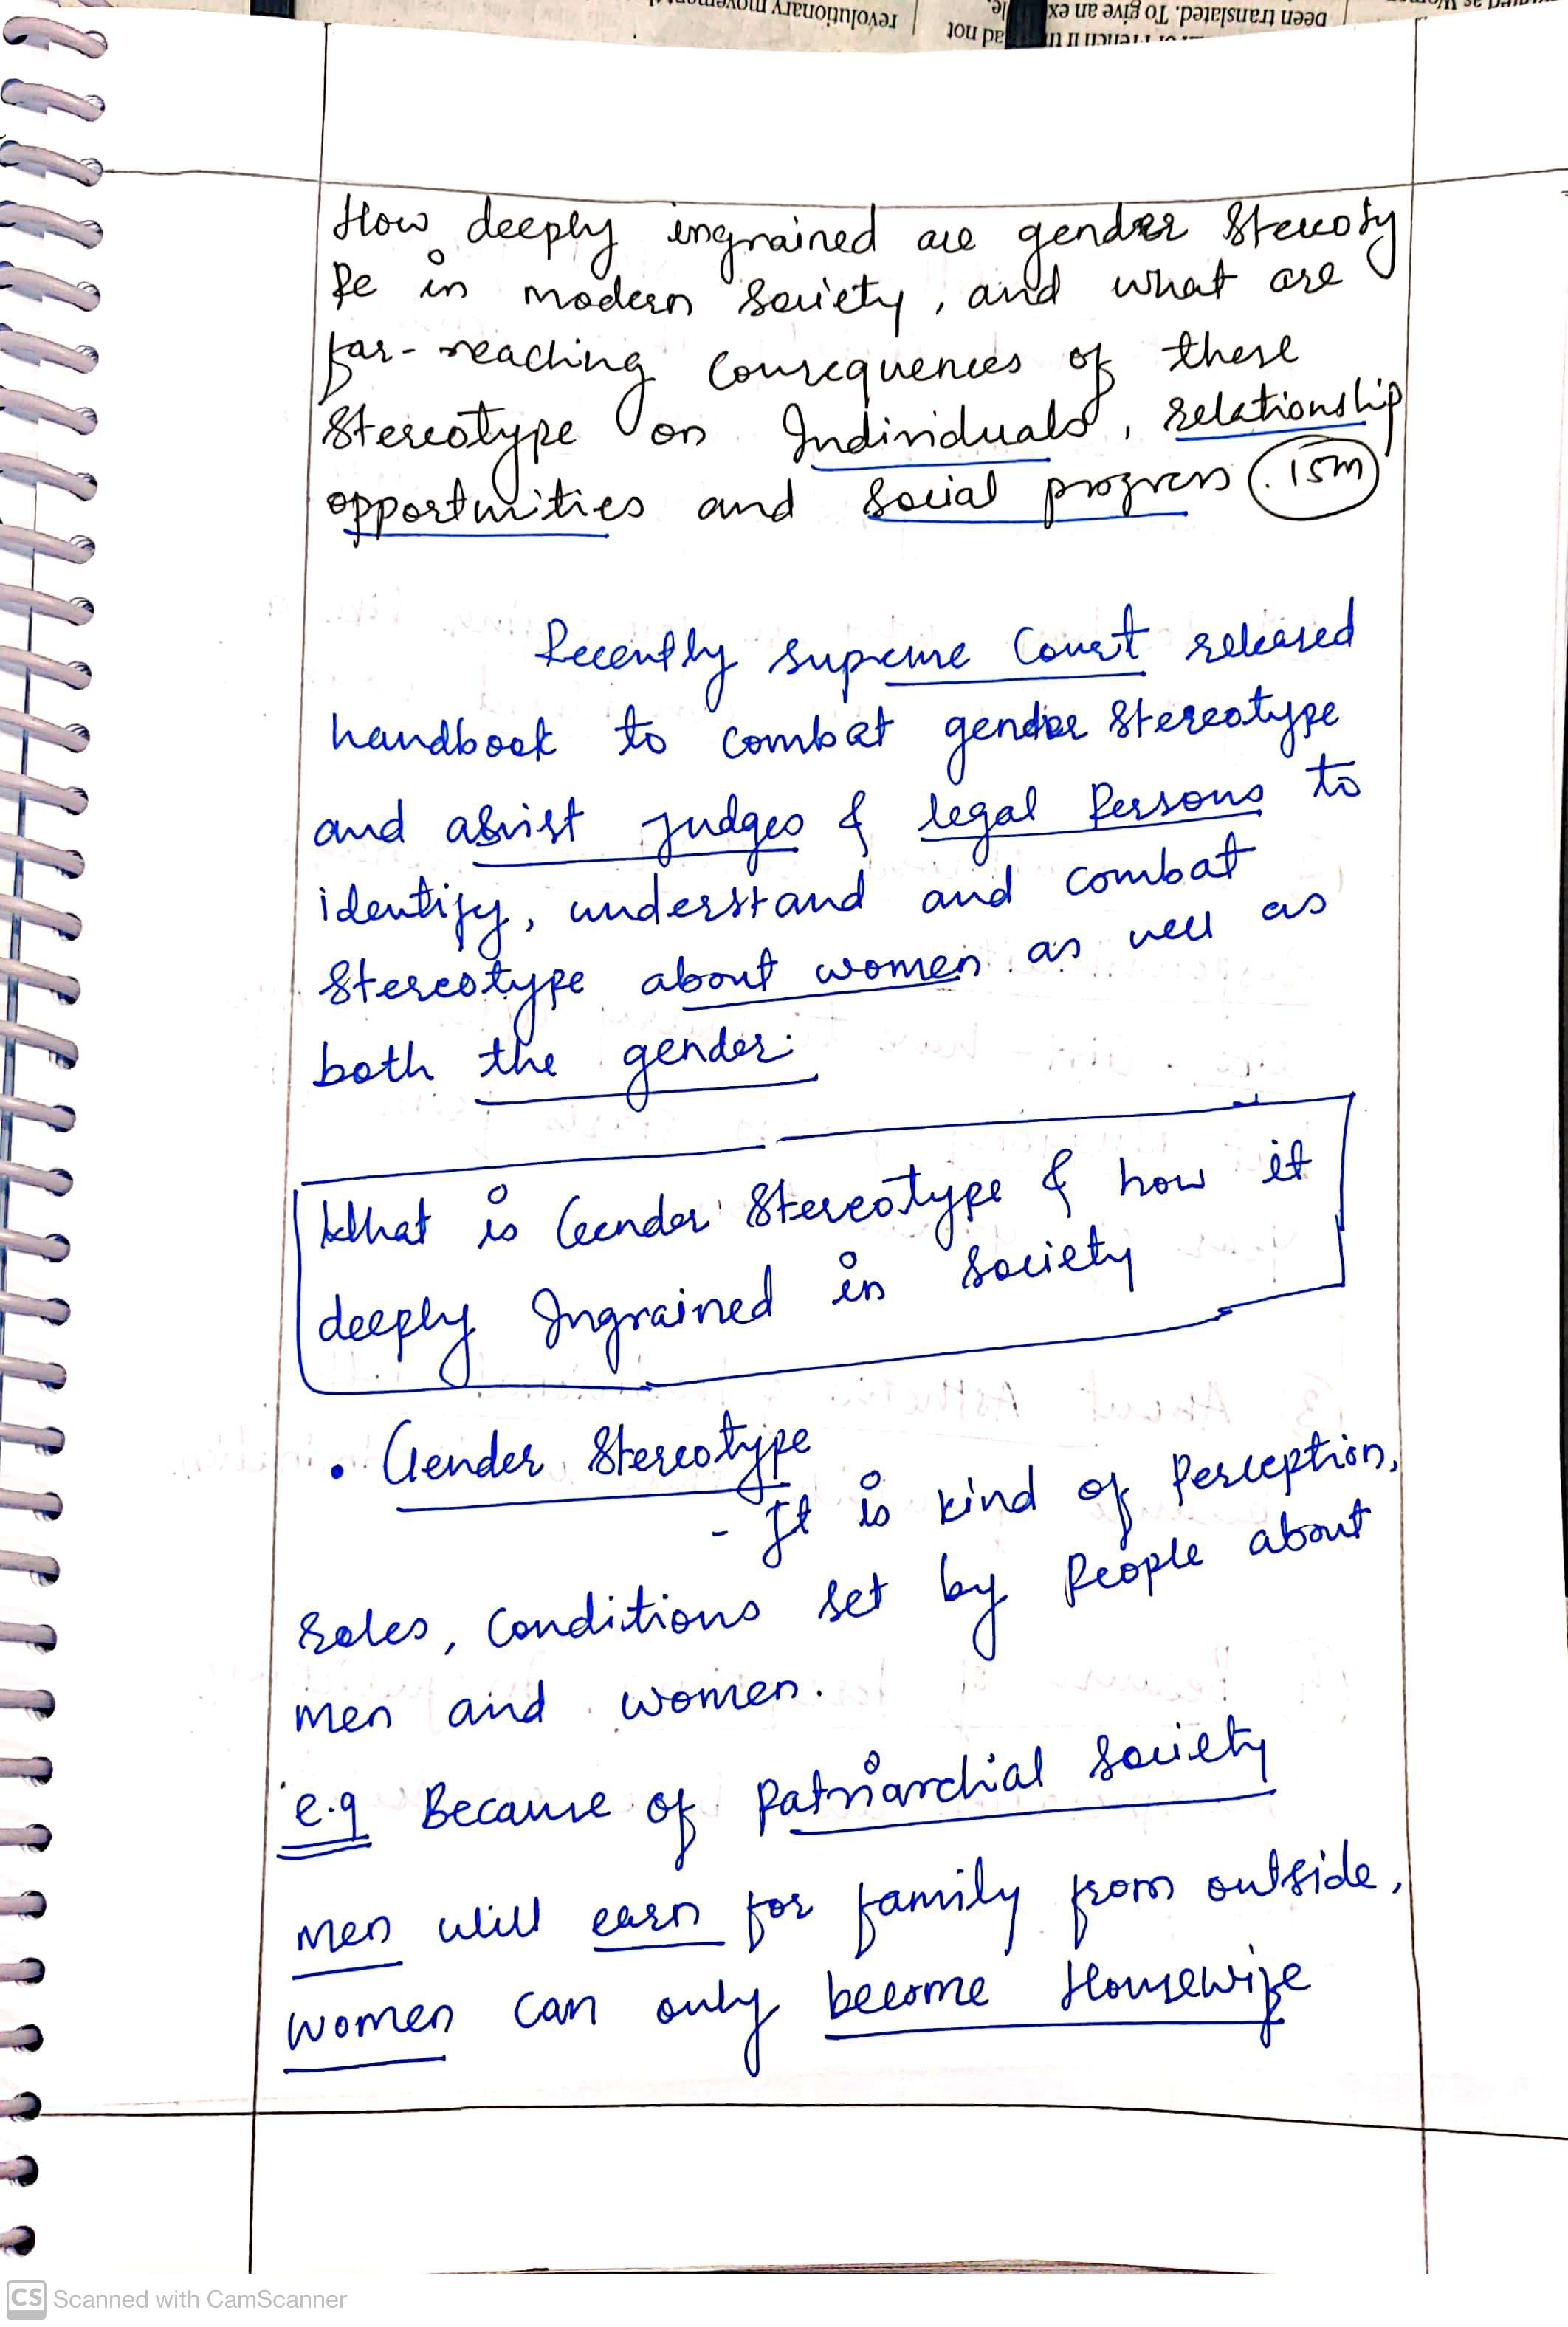 revolutionary movement
ad not
been translated. To give an ex
How deeply ingrained are gender Steroty
Pe in modern Society, and what are
far-reaching Consequences of these
Stereotype on Individuals, relationship
opportunities and Social progress (.15m)
Recently Supreme Court released
handbook to combat gender Stereotype
and assist judges & legal Persons to
identify, understand and combat
Stereotype about women as well as
both the gender.
What is Gender Stereotype & how it
deeply Ingrained in Society
• Gender Stereotype
- It is kind of Perception,
roles, Conditions set by People about
men and women.
e.g Because of Patriarchial Society
men will earn for family from outside,
women can only become Housewife
CS Scanned with CamScanner